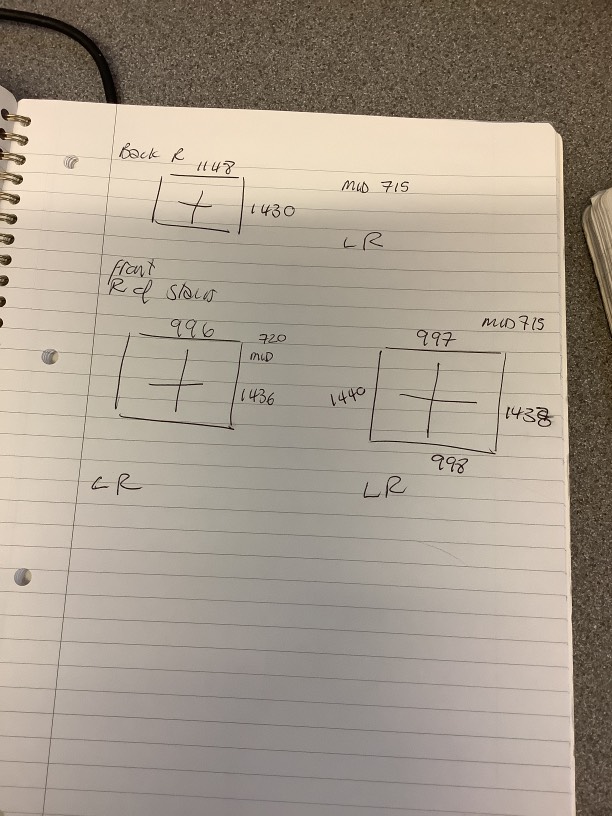 Back R
1148
MID 715
1430
LR
Front
R of stairs
996
720
MID
1436
LR
MID 715
997
1440
1438
998
LR